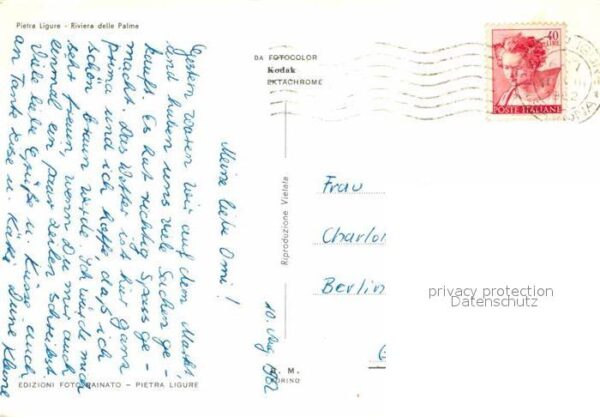 Pietra Ligure - Riviera delle Palme
DA FOTOCOLOR
Kodak
EKTACHROME
40
LIRE
POSTE ITALIANE
10. Aug 1962
Meine liebe Omi!
Gestern waren wir auf dem Markt,
und haben uns viele Sachen ge-
kauft. Es hat richtig Spass ge-
macht. Das Wetter ist hier ganz
prima und ich hoffe, daß ich
schön braun werde. Ich würde mich
sehr freuen, wenn Du mir auch
einmal ein paar Zeilen schreibst.
Viele liebe Grüße u. Küsse auch
an Tante Ilse u. Käthe Deine Kleine
Frau
Charlo
Berlin
privacy protection
Datenschutz
Riproduzione Vietata
A. M.
TORINO
EDIZIONI FOTO RAINATO - PIETRA LIGURE